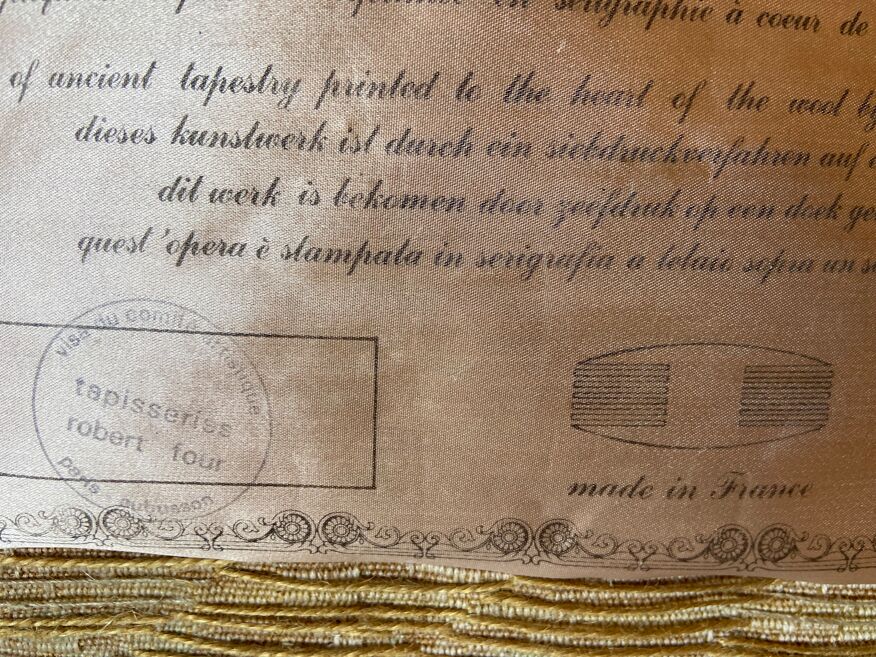 en serigraphie à coeur de
of ancient tapestry printed to the heart of the wool by
dieses kunstwerk ist durch ein siebdruckverfahren auf
dit werk is bekomen door zeefdruk op een doek
quest'opera è stampata in serigrafia a telaio sopra un
visa du comité artistique
tapisseries
robert four
paris aubusson
made in France